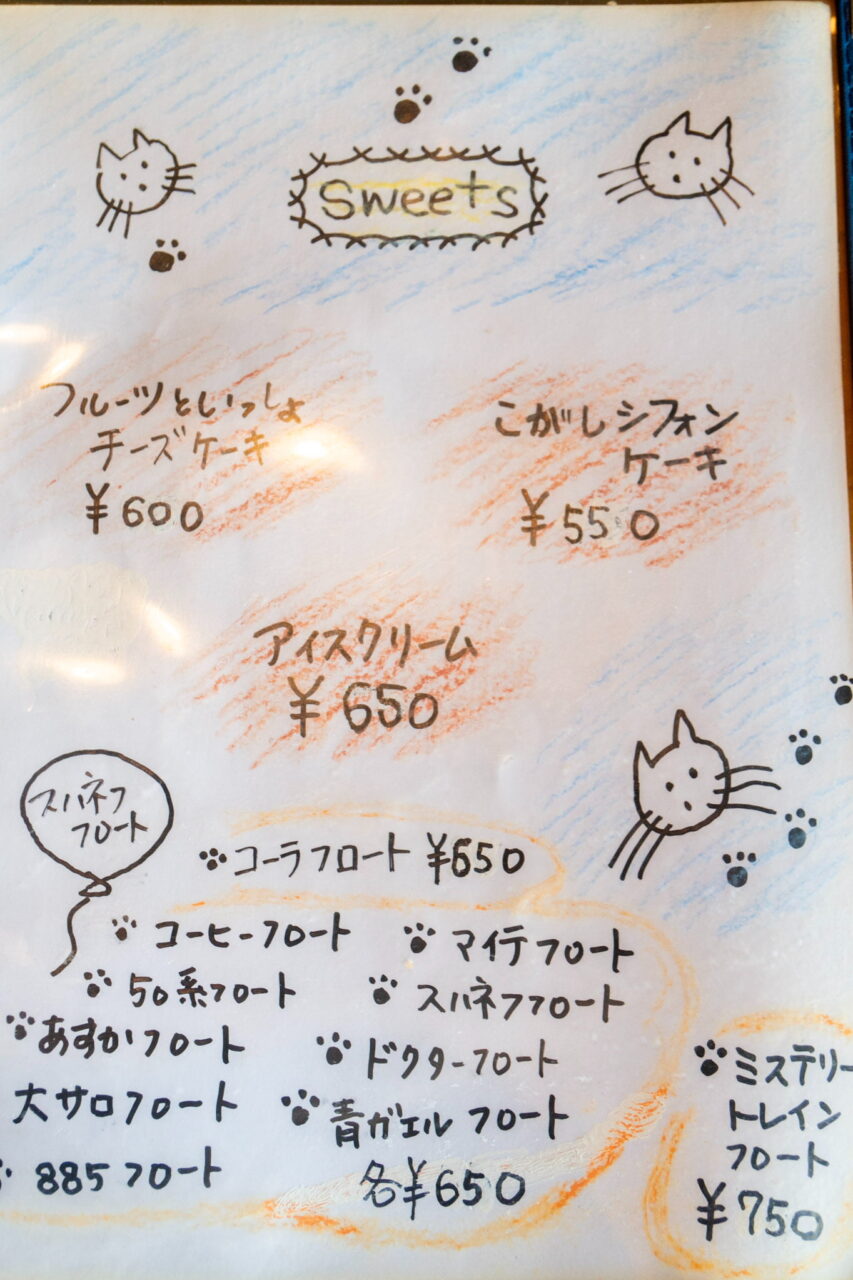 sweets
フルーツといっしょ
チーズケーキ
¥600
こがしシフォン
ケーキ
¥550
アイスクリーム
¥650
スハネフ
フロート
コーラフロート ¥650
コーヒーフロート
マイテフロート
50系フロート
スハネフフロート
あすかフロート
ドクターフロート
大サロフロート
青ガエルフロート
885フロート
各¥650
ミステリー
トレイン
フロート
¥750